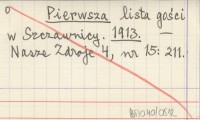 Pierwsza lista gości
w Szczawnicy. 1913. —
Nasze Zdroje 4, nr 15: 211.